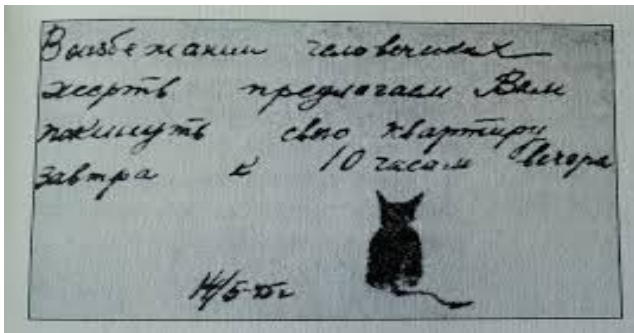 Воизбежании человечиских
жертв предлагаем Вам
покинуть свою квартиру
завтра к 10 часам вечера